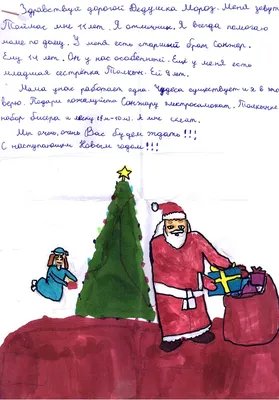 Здравствуй дорогой Дедушка Мороз. Меня зовут
мне 11 лет. Я отличник. Я всегда помогаю
маме по дому. У меня есть старший брат Санжар.
Ему 14 лет. Он у нас особенный. Ещё у меня есть
младшая сестрёнка Толкын. Ей 9 лет.
Мама у нас работает одна. Чудеса существует и я в это
верю. Подари пожалуйста Санжару электросамокат. Толкыне
набор бисера и а мне
Мы очень, очень Вас будем ждать!!!
С наступающим Новым годом!!!